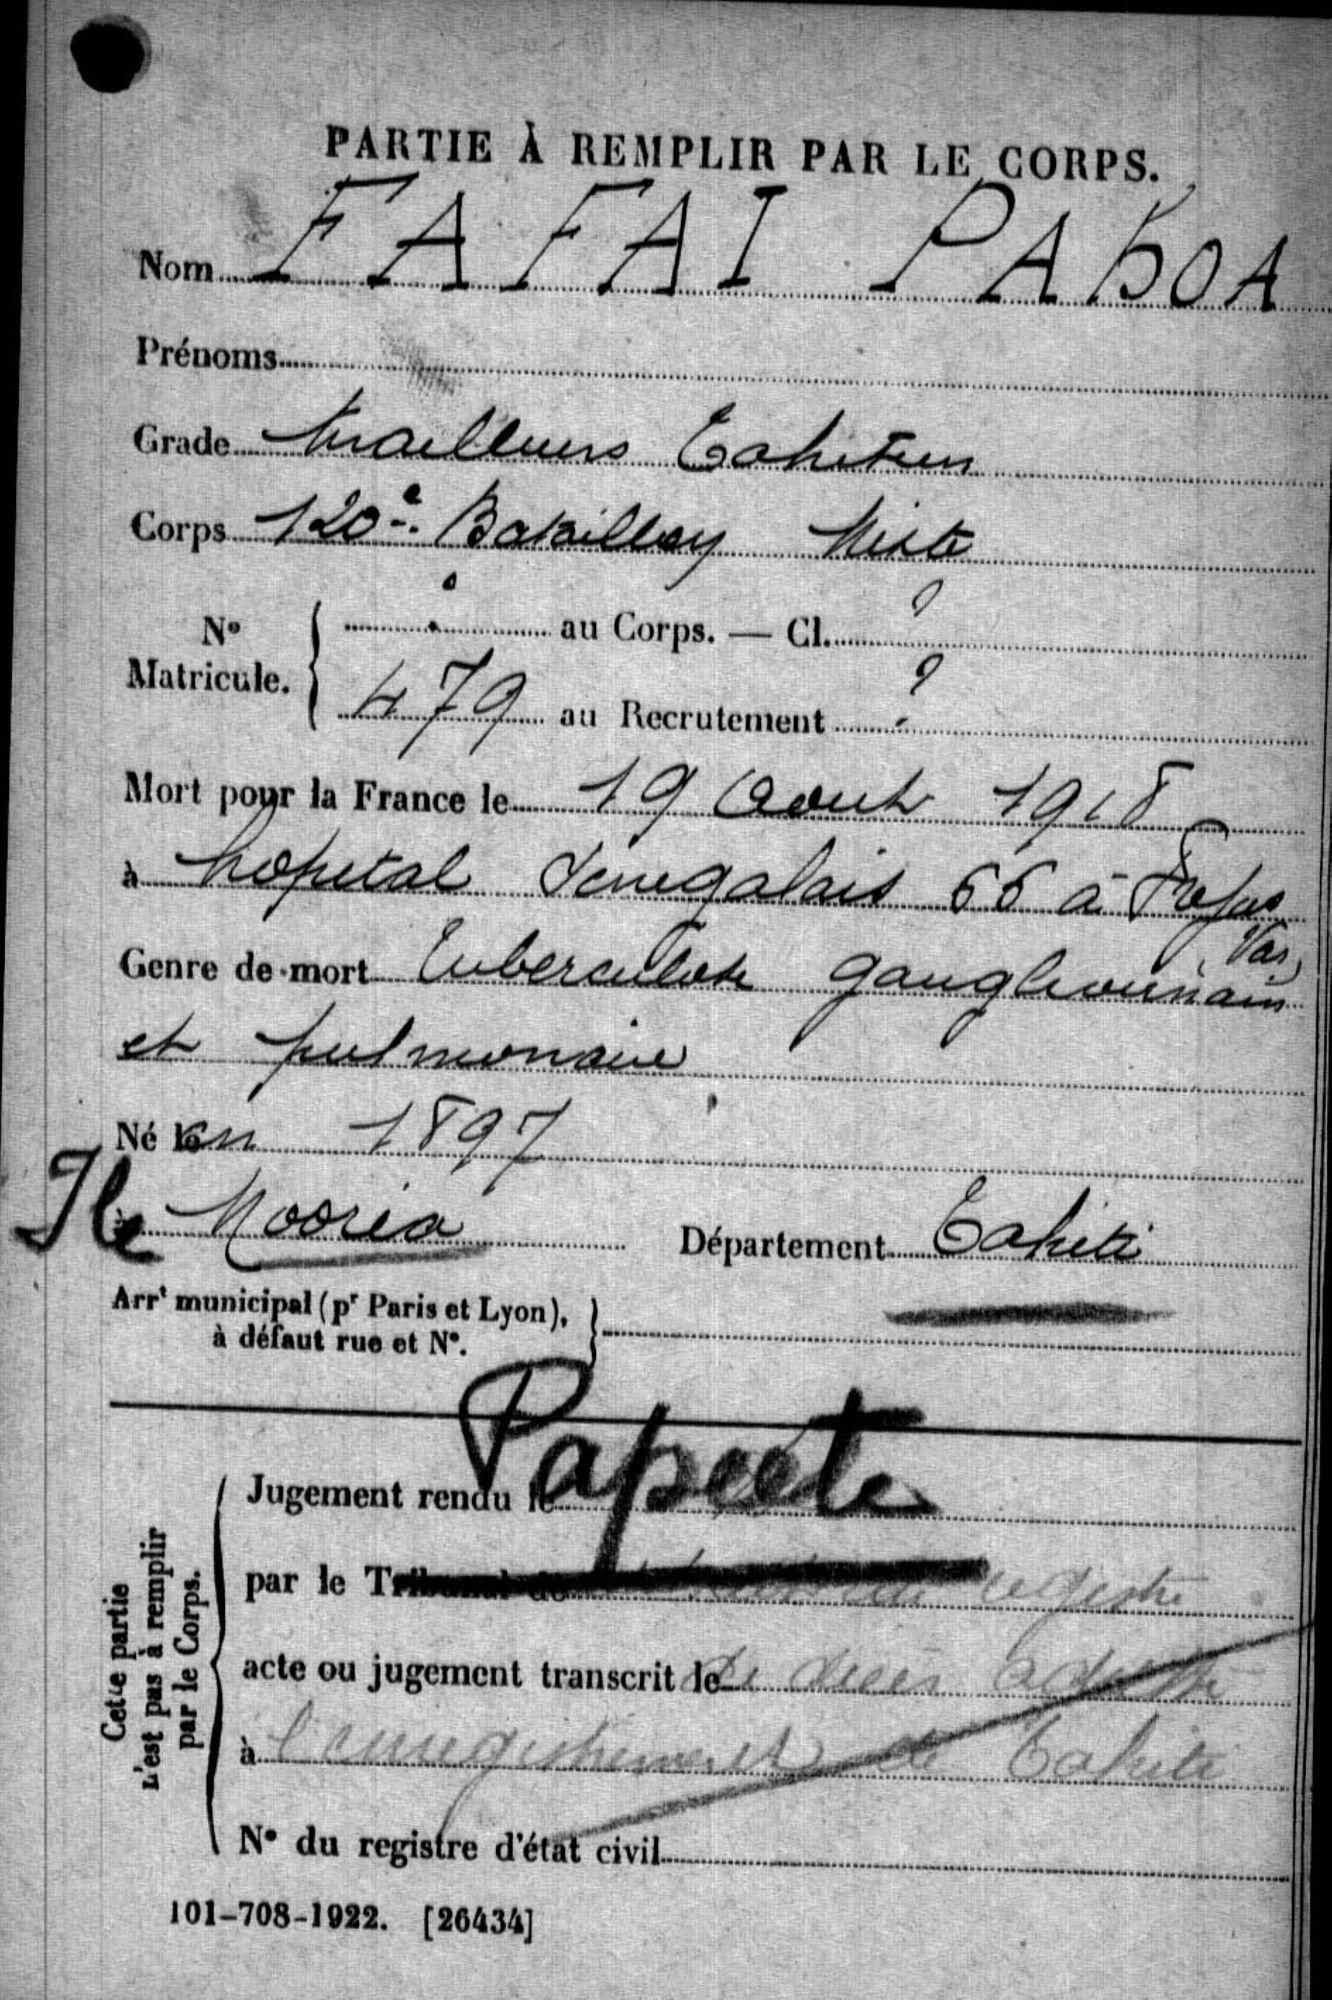 PARTIE À REMPLIR PAR LE CORPS.
Nom FAFAI PAKOA
Prénoms
Grade Tirailleurs Tahitien
Corps 120e Bataillon Mixte
No Matricule. { ? au Corps. — Cl. ?
479 au Recrutement ?
Mort pour la France le 19 Aout 1918
à hopital Senegalais 66 à Frejus
Var
Genre de mort Tuberculose ganglionnaire
et pulmonaire
Né le en 1897
Ile à Mooréa Département Tahiti
Arrt municipal (pr Paris et Lyon),
à défaut rue et No. }
Papeete
Jugement rendu le
par le Tribunal de registre
acte ou jugement transcrit le de décès
à l'enregistrement de Tahiti
No du registre d'état civil
Cette partie
n'est pas à remplir
par le Corps.
101-708-1922. [26434]